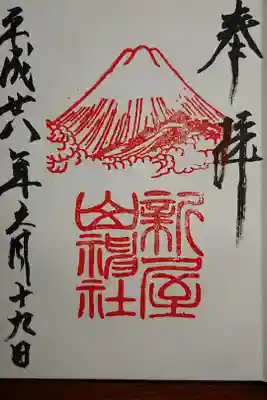 奉拝
新屋
山神社
平成廿八年月十九日